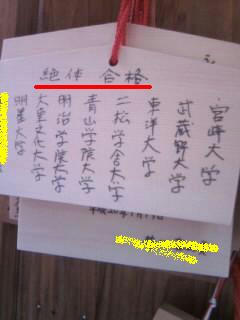 絶体 合格
宮崎大学
武蔵野大学
東洋大学
二松学舎大学
青山学院大学
明治学院大学
大東文化大学
明星大学